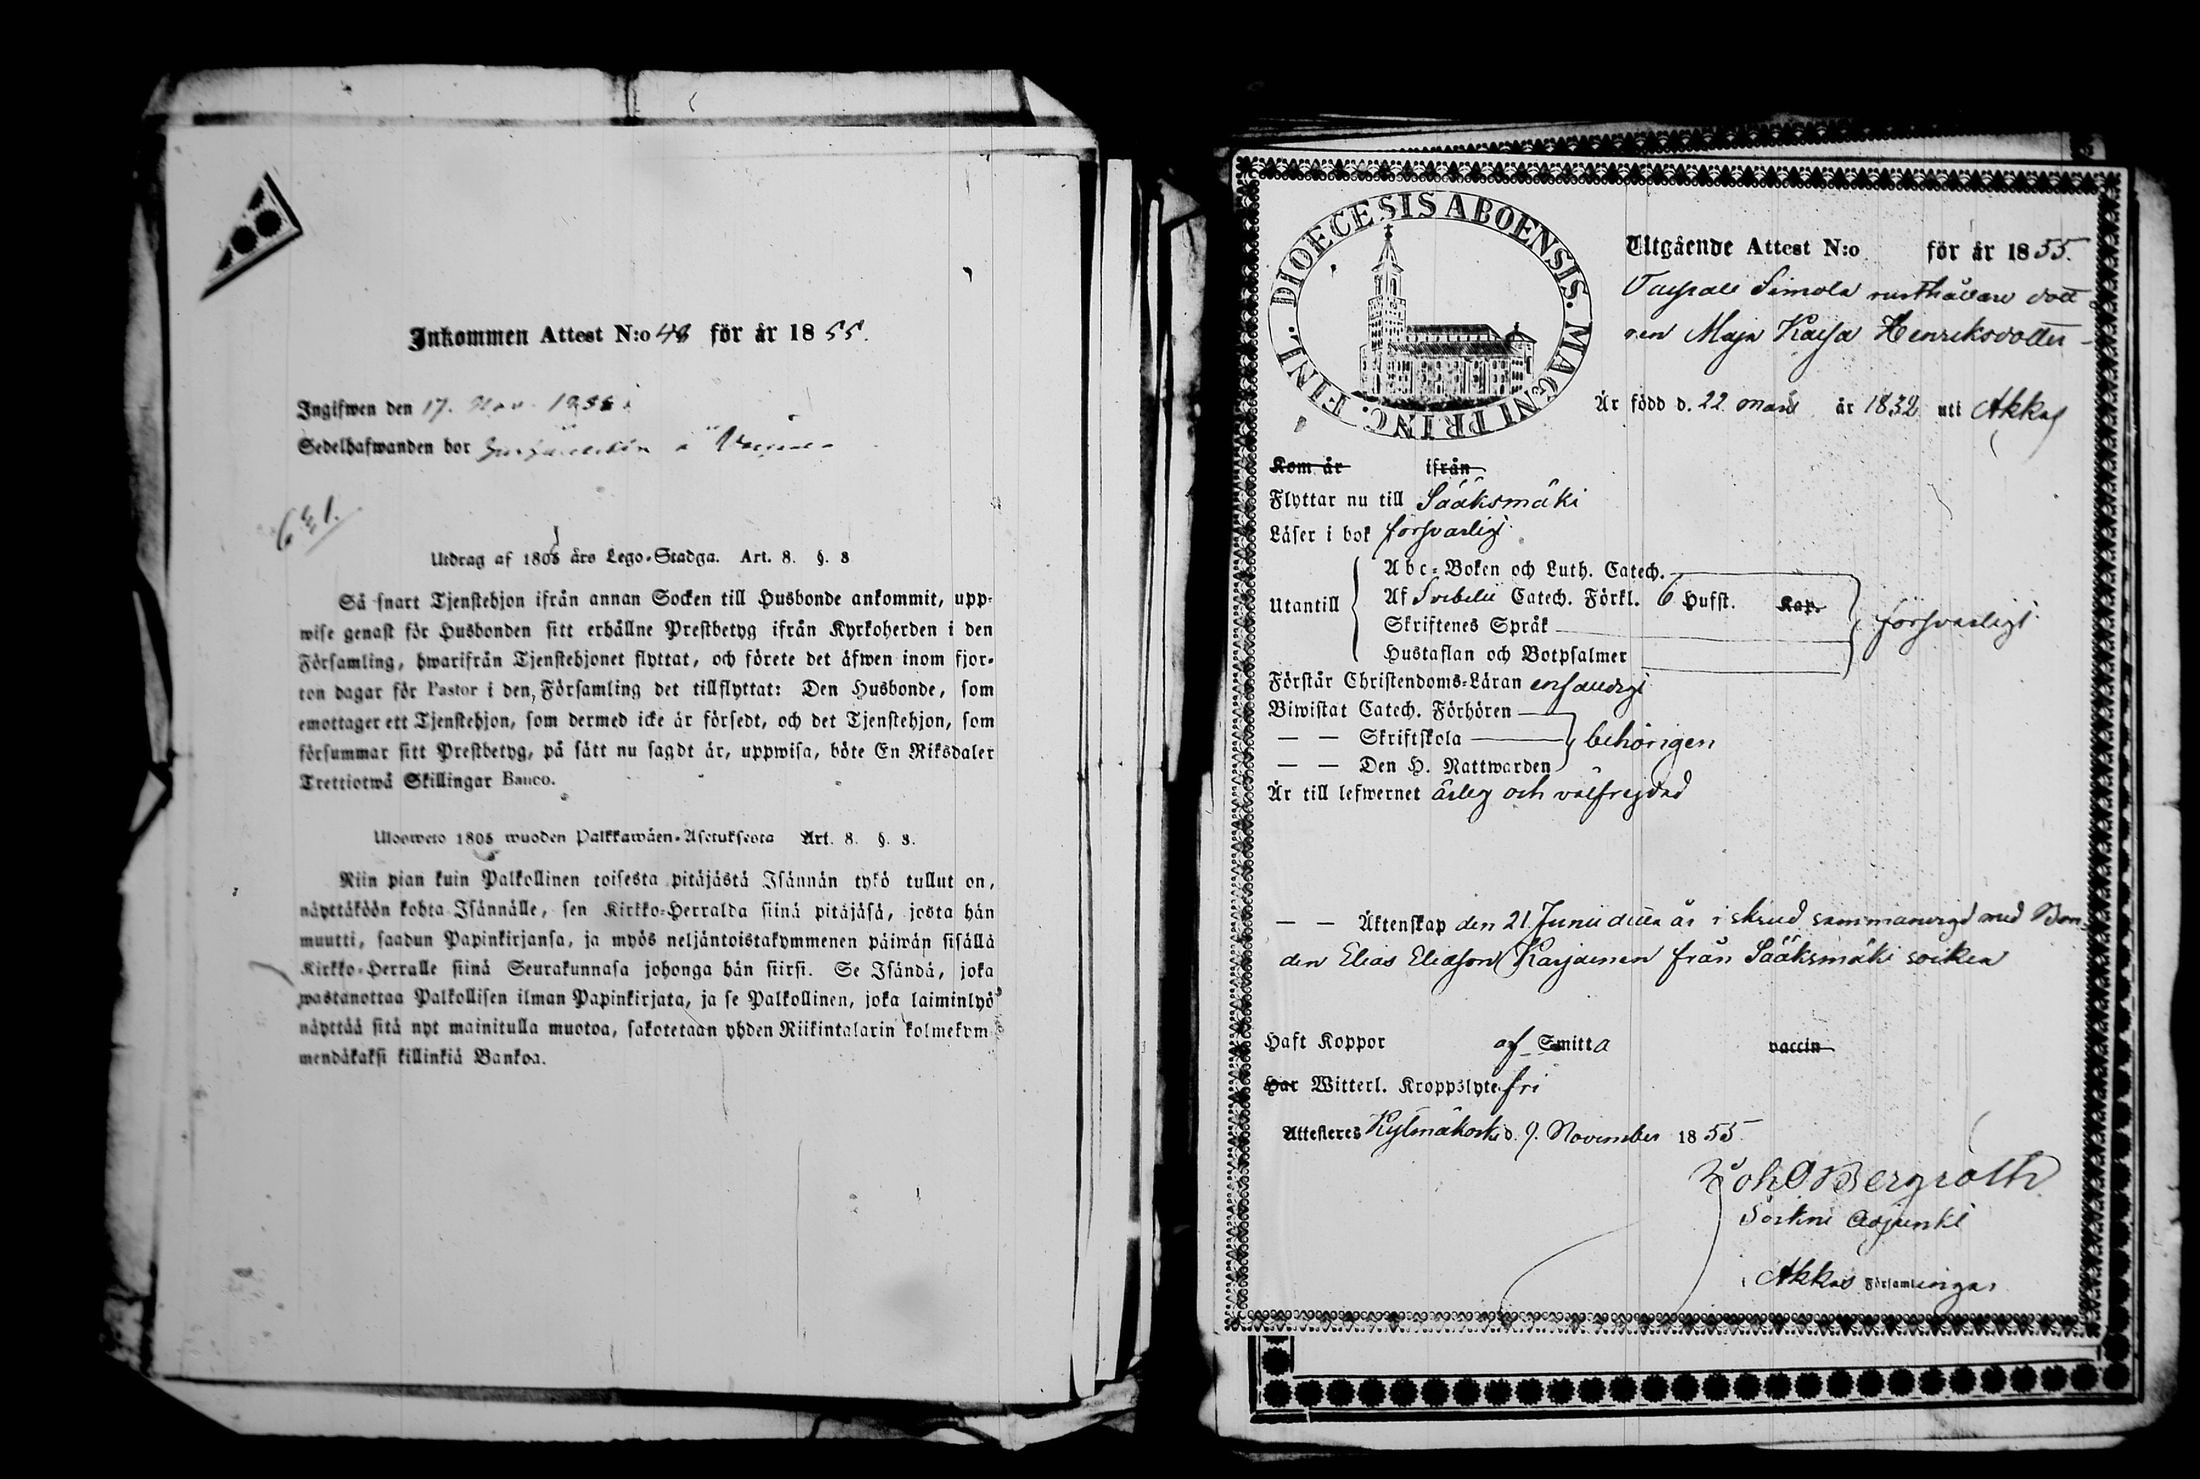 Inkommen Attest N:o 48 för år 1855.
Ingifwen den 17. Nov. 1855
Sedelhafwanden bor
Utdrag af 1805 års Lego-Stadga. Art. 8. §. 8
Så snart Tjenstehjon ifrån annan Socken till Husbonde ankommit, upp-
wise genast för Husbonden sitt erhållne Prestbetyg ifrån Kyrkoherden i den
Församling, hwarifrån Tjenstehjonet flyttat, och förete det äfwen inom fjor-
ton dagar för Pastor i den Församling det tillflyttat: Den Husbonde, som
emottager ett Tjenstehjon, som dermed icke är försedt, och det Tjenstehjon, som
försummar sitt Prestbetyg, på sätt nu sagdt är, uppwisa, böte En Riksdaler
Trettiotwå Skillingar Banco.
Ulosweto 1805 wuoden Palkkawäen-Asetuksesta Art. 8. §. 8.
Niin pian kuin Palkollinen toisesta pitäjästä Isännän tykö tullut on,
näyttäköön kohta Isännälle, sen Kirkko-Herralda siinä pitäjäsä, josta hän
muutti, saadun Papinkirjansa, ja myös neljäntoistakymmenen päiwän sisällä
Kirkko-Herralle siinä Seurakunnasa johonga hän siirsi. Se Isändä, joka
wastanottaa Palkollisen ilman Papinkirjata, ja se Palkollinen, joka laiminlyö
näyttää sitä nyt mainitulla muotoa, sakotetaan yhden Riikintalarin kolmekym-
mendäkaksi killinkiä Bankoa.
DIOECESIS ABOENSIS. MAGNI PRINC. FINL.
Utgående Attest N:o för år 1855.
Simola rusthållare dott
ren Maja Kajsa Henriksdotter
Är född d. 22 mars år 1832 uti Akkas
Kom år ifrån
Flyttar nu till Sääksmäki
Läser i bok försvarligt
Abc-Boken och Luth. Catech.
Utantill Af Svebelii Catech. Förkl. 6 Hufst. Kap. försvarligt
Skriftenes Språk
Hustaflan och Botpsalmer
Förstår Christendoms-Läran enfaldigt
Biwistat Catech. Förhören
— — Skriftskola behörigen
— — Den H. Nattwarden
Är till lefwernet ärlig och välfrejdad
— — Äktenskap den 21 Junii detta år i skrud sammanvigd med Bon-
den Elias Eliasson Karjainen från Sääksmäki socken
Haft Koppor af Smitta vaccin
Har Witterl. Kroppslyte fri
Attesteres Kylmäkoski d. 9. November 1855.
Joh O Bergroth
Sockne Adjunkt
i Akkas Församlingar